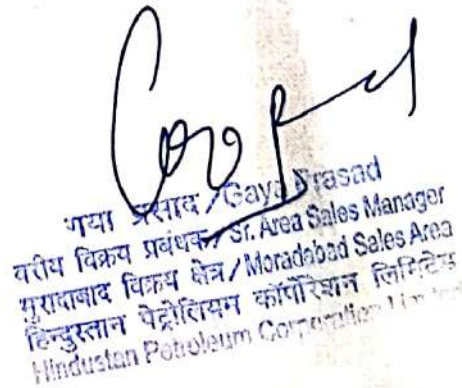 गया प्रसाद / Gaya Prasad
वरीय विक्रय प्रबंधक / Sr. Area Sales Manager
मुरादाबाद विक्रय क्षेत्र / Moradabad Sales Area
हिन्दुस्तान पेट्रोलियम कॉर्पोरेशन लिमिटेड
Hindustan Petroleum Corporation Limited